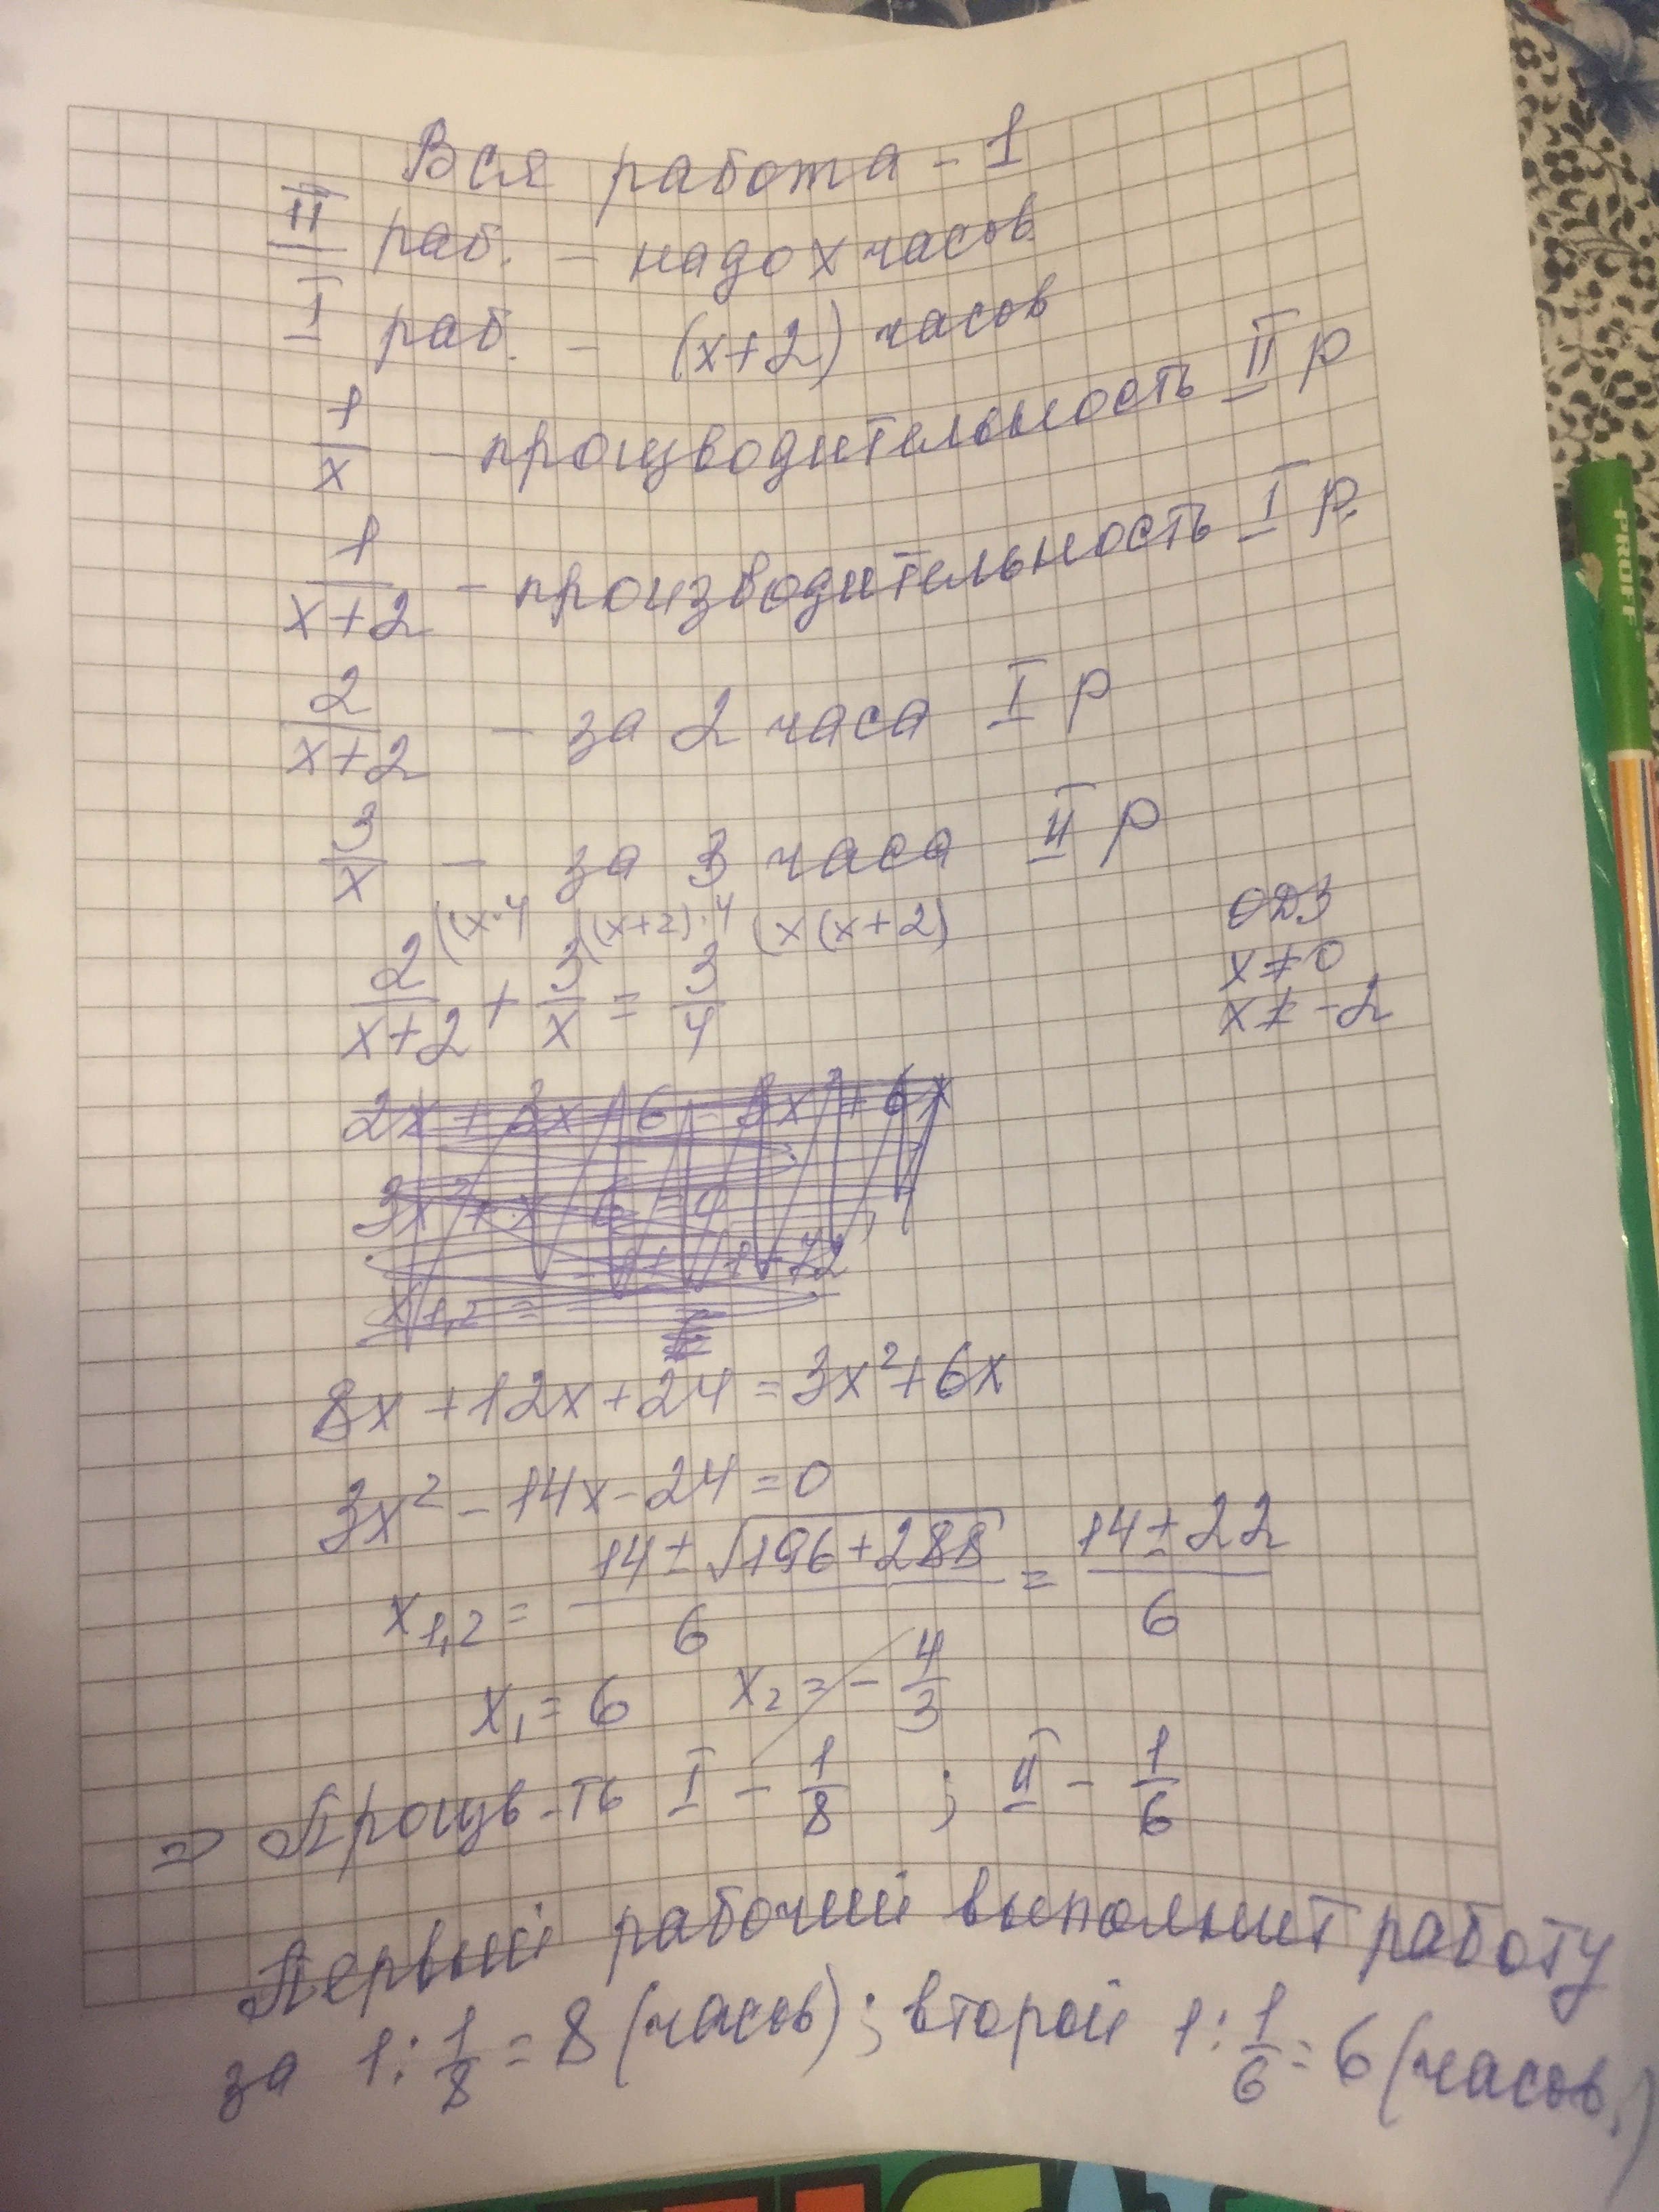 Вся работа - 1
II раб. - надо x часов
I раб. - (x+2) часов
1/x - производительность II р
1/(x+2) - производительность I р.
2/(x+2) - за 2 часа I р
3/x - за 3 часа II р
(x·4 ((x+2)·4 (x(x+2)
2/(x+2) + 3/x = 3/4
ОДЗ
x≠0
x≠-2
8x+12x+24=3x²+6x
3x²-14x-24=0
x1,2= (14±√(196+288))/6 = (14±22)/6
x1=6 x2=-4/3
⇒ Произв-ть I - 1/8 ; II - 1/6
Первый рабочий выполнит работу
за 1:1/8=8 (часов); второй 1:1/6=6 (часов.)
PROFF